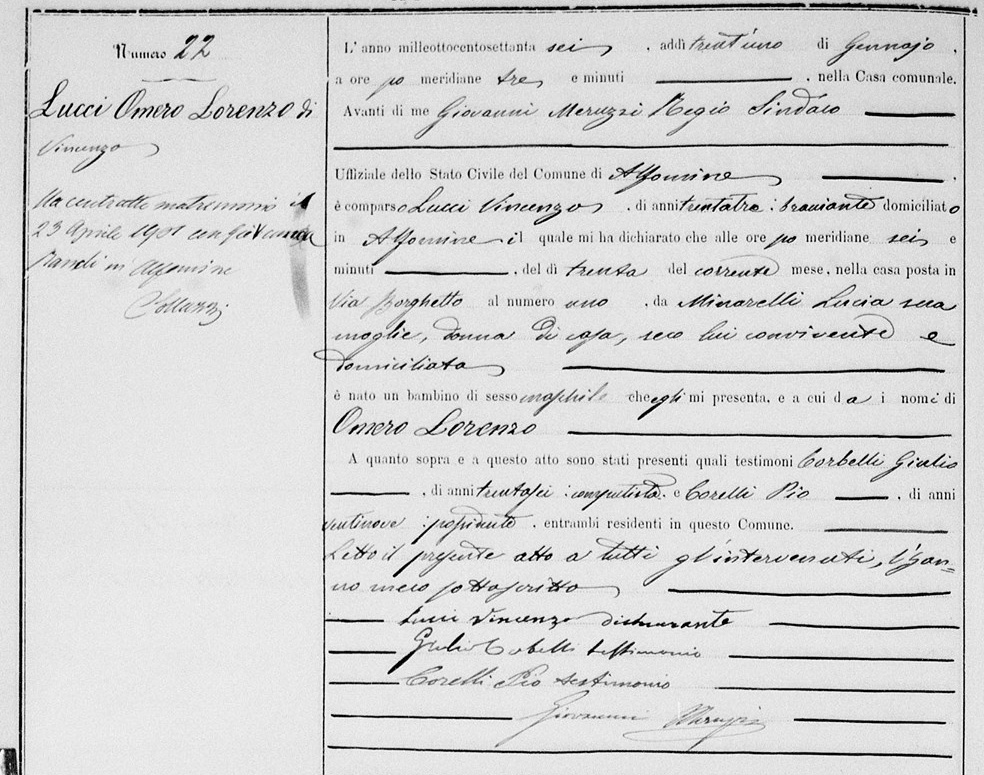 Numero 22
Lucci Omero Lorenzo di
Vincenzo
Ha contratto matrimonio il
23 Aprile 1901 con
Randi in Alfonsine
L'anno milleottocentosettanta sei, addì trent'uno di Gennajo,
a ore po meridiane tre e minuti, nella Casa comunale.
Avanti di me Giovanni Meruzzi Regio Sindaco
Uffiziale dello Stato Civile del Comune di Alfonsine,
è comparso Lucci Vincenzo, di anni trentatre: bracciante domiciliato
in Alfonsine il quale mi ha dichiarato che alle ore po meridiane sei e
minuti, del dì trenta del corrente mese, nella casa posta in
Via Borghetto al numero uno, da Minarelli Lucia sua
moglie, donna di casa, seco lui convivente e
domiciliata
è nato un bambino di sesso maschile che egli mi presenta, e a cui da i nomi di
Omero Lorenzo
A quanto sopra e a questo atto sono stati presenti quali testimoni Corbelli Giulio
, di anni trentasei: computista, e Corelli Pio, di anni
ventinove: possidente, entrambi residenti in questo Comune.
Letto il presente atto a tutti gl'intervenuti, l'han=
no meco sottoscritto
Lucci Vincenzo dichiarante
Giulio Corbelli testimonio
Corelli Pio testimonio
Giovanni Meruzzi